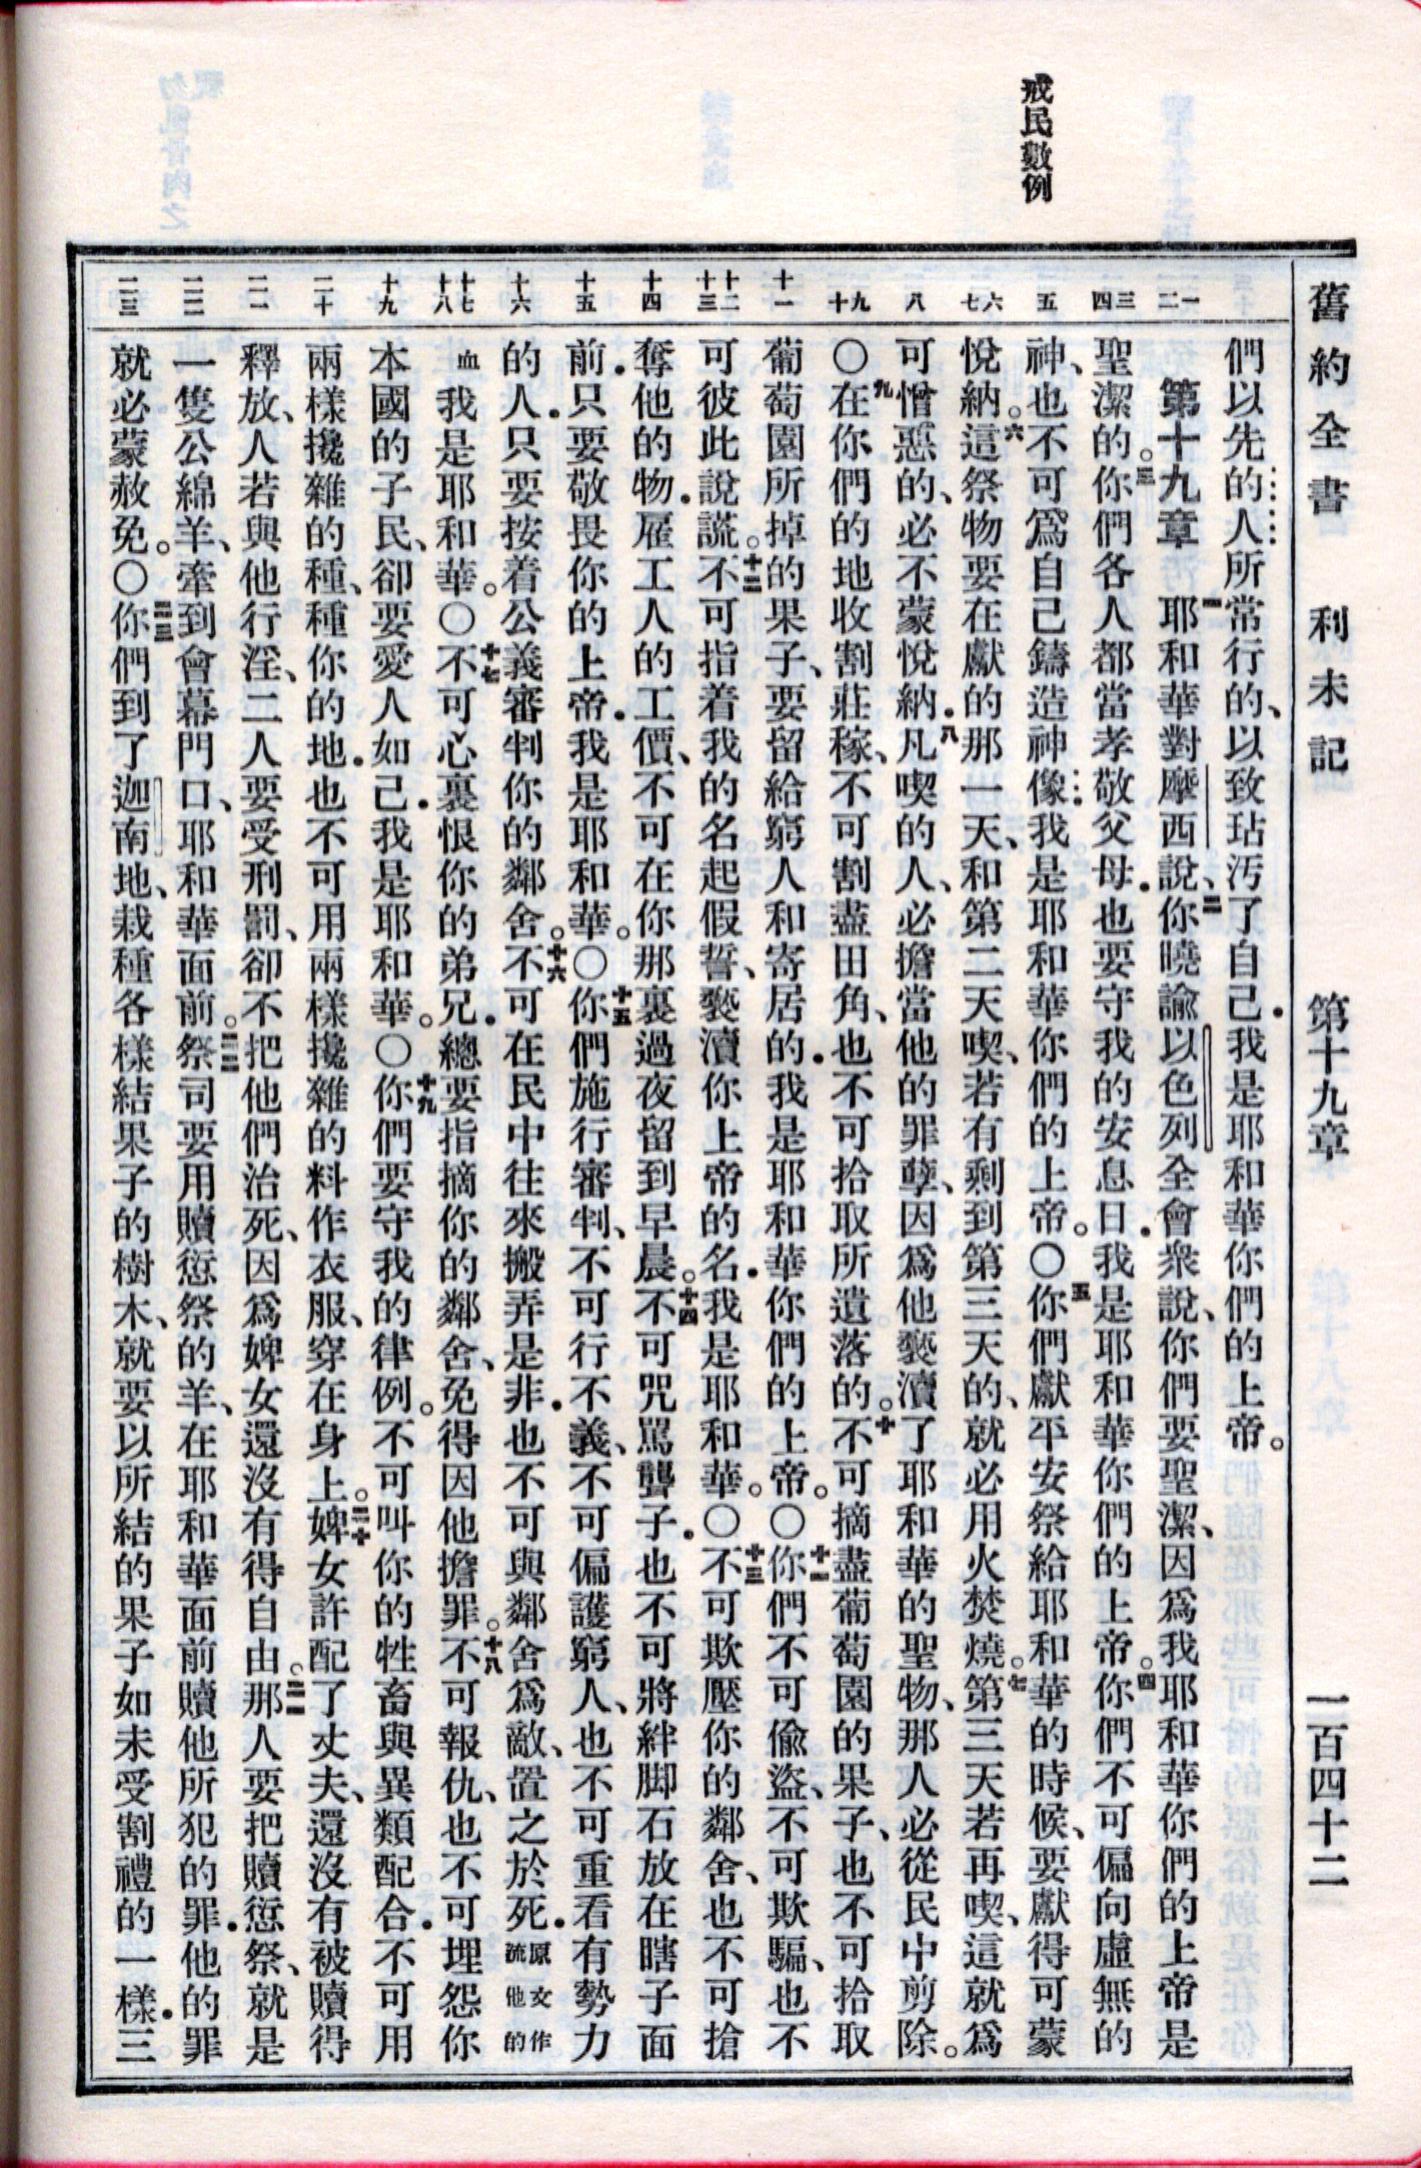 舊約全書 利未記 第十九章 一百四十二
戒民數例
們以先的人所常行的、以致玷污了自己．我是耶和華你們的上帝。
一 二
第十九章 一耶和華對摩西說、二你曉諭以色列全會衆說、你們要聖潔、因爲我耶和華你們的上帝是
三 四
聖潔的。三你們各人都當孝敬父母．也要守我的安息日．我是耶和華你們的上帝。四你們不可偏向虛無的
五
神、也不可爲自己鑄造神像．我是耶和華你們的上帝。〇五你們獻平安祭給耶和華的時候、要獻得可蒙
六 七
悅納。六這祭物要在獻的那一天、和第二天喫、若有剩到第三天的、就必用火焚燒。七第三天若再喫、這就爲
八
可憎惡的、必不蒙悅納．八凡喫的人、必擔當他的罪孽、因爲他褻瀆了耶和華的聖物、那人必從民中剪除。
九 十
〇九在你們的地收割莊稼、不可割盡田角、也不可拾取所遺落的。十不可摘盡葡萄園的果子、也不可拾取
十一
葡萄園所掉的果子、要留給窮人和寄居的．我是耶和華你們的上帝。〇十一你們不可偷盜、不可欺騙、也不
十二 十三
可彼此說謊。十二不可指着我的名起假誓、褻瀆你上帝的名．我是耶和華。〇十三不可欺壓你的鄰舍、也不可搶
十四
奪他的物．雇工人的工價、不可在你那裏過夜留到早晨。十四不可咒罵聾子．也不可將絆脚石放在瞎子面
十五
前．只要敬畏你的上帝．我是耶和華。〇十五你們施行審判、不可行不義、不可偏護窮人、也不可重看有勢力
十六
的人．只要按着公義審判你的鄰舍。十六不可在民中往來搬弄是非．也不可與鄰舍爲敵、置之於死．原文作流他的
十七 十八
血 我是耶和華。〇十七不可心裏恨你的弟兄．總要指摘你的鄰舍、免得因他擔罪。十八不可報仇、也不可埋怨你
十九
本國的子民、卻要愛人如己．我是耶和華。〇十九你們要守我的律例。不可叫你的牲畜與異類配合．不可用
二十
兩樣攙雜的種、種你的地．也不可用兩樣攙雜的料作衣服、穿在身上。二十婢女許配了丈夫、還沒有被贖得
二一
釋放、人若與他行淫、二人要受刑罰、卻不把他們治死、因爲婢女還沒有得自由。二一那人要把贖愆祭、就是
二二
一隻公綿羊、牽到會幕門口、耶和華面前。二二祭司要用贖愆祭的羊、在耶和華面前贖他所犯的罪．他的罪
二三
就必蒙赦免。〇二三你們到了迦南地、栽種各樣結果子的樹木、就要以所結的果子如未受割禮的一樣．三